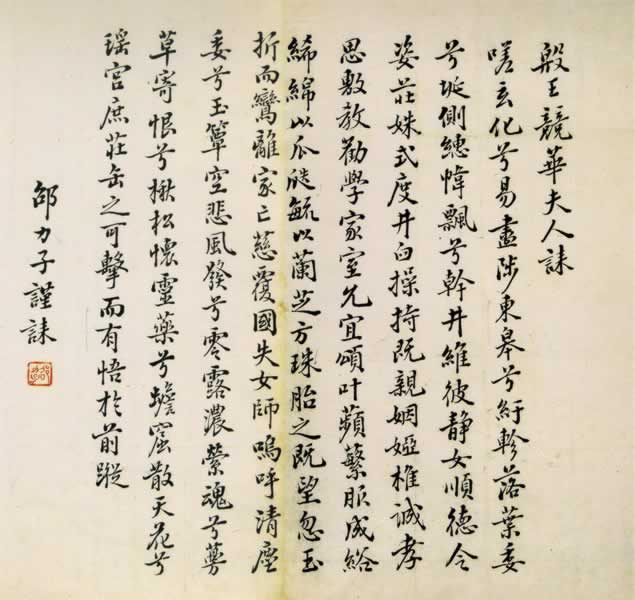 殷王競華夫人誄
嗟玄化兮易盡陟東皋兮紆軫落葉委
兮埏側繐帷飄兮幹井維彼静女順德令
姿莊姝式度井臼操持既親姻婭椎誠孝
思敷教勸學家室允宜頌叶蘋蘩服成綌
絺綿以瓜瓞毓以蘭芝方珠胎之既望忽玉
折而鸞離家亡慈覆國失女師嗚呼清塵
委兮玉簟空悲風發兮零露濃縈魂兮蔓
草寄恨兮楸松懷靈藥兮蟾窟散天花兮
瑶宫庶莊缶之可擊而有悟於前蹤
邵力子謹誄